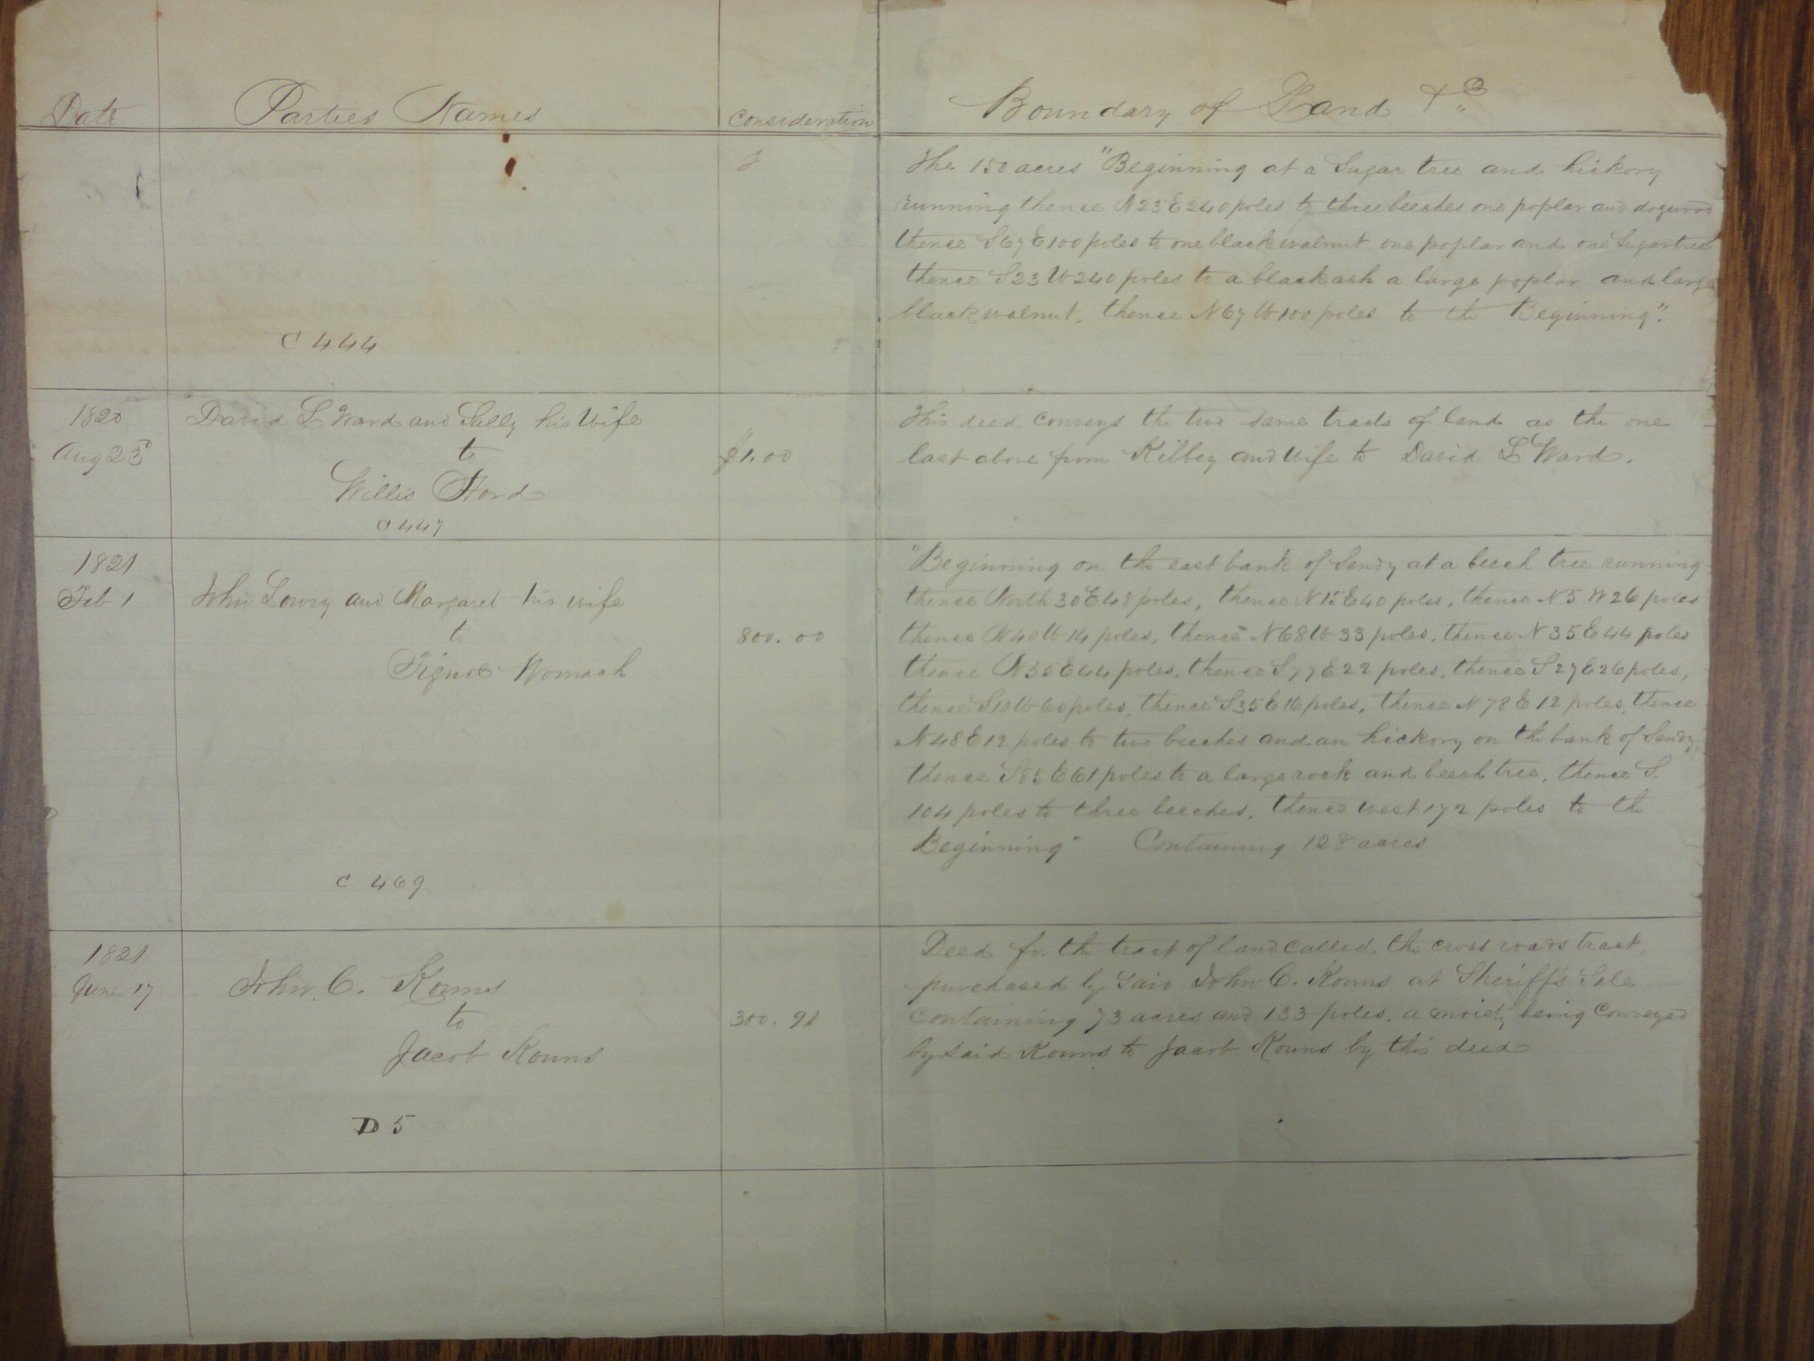 Date Parties Names Consideration Boundary of Land &c
The 150 acres "Beginning at a Sugar tree and hickory
running thence N23E240 poles to three beeches one poplar and dogwood
thence S67E100 poles to one black walnut one poplar and one Sugartree
thence S23W240 poles to a black ash a large poplar and large
black walnut, thence N67W100 poles to the Beginning".
C 444
1820
Aug 23
David L Ward and Sally his Wife
to
Willis
C 447
$1.00
This deed conveys the two same tracts of land as the one
last above from Kibbey and Wife to David L Ward.
1821
Feb 1
John Lowry and Margaret his wife
to
Womack
C 469
800.00
"Beginning on the east bank of Sandy at a beech tree running
thence North 30E48 poles, thence N15E40 poles, thence N5W26 poles
thence N40W14 poles, thence N68W33 poles, thence N35E44 poles
thence N35E44 poles, thence S77E22 poles, thence S27E26 poles,
thence S10W60 poles, thence S35E16 poles, thence N78E12 poles, thence
N48E12 poles to two beeches and an hickory on the bank of Sandy,
thence S85E61 poles to a large rock and beech tree, thence S
104 poles to three beeches, thence west 172 poles to the
Beginning" Containing 128 acres
1821
June 17
John C. Kouns
to
Jacob Kouns
D 5
300.91
Deed for the tract of land called the cross roads tract,
purchased by said John C. Kouns at Sheriff's Sale
containing 73 acres and 133 poles, a moiety being conveyed
by said Kouns to Jacob Kouns by this deed